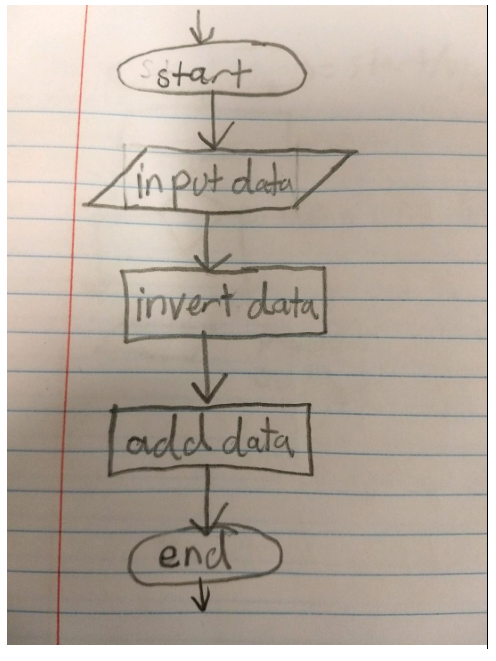 start
input data
invert data
add data
end